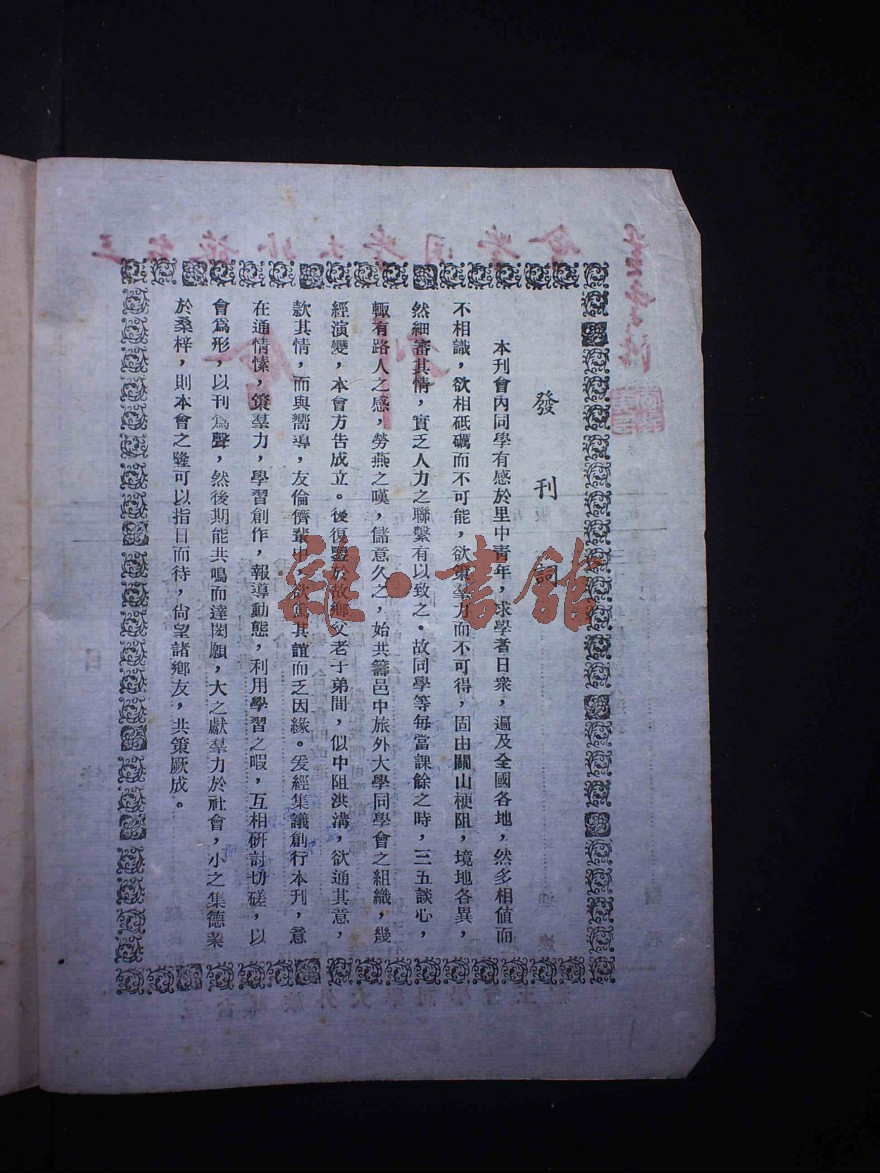 發刊詞
本刊會內同學有感於里中青年，求學者日衆，遍及全國各地，然多相值而
不相識，欲相砥礪而不可能，欲策羣力而不可得，固由關山梗阻，境地各異，
然細審其情，實乏人力之聯繫有以致之。故同學等每當課餘之時，三五談心，
輙有路人之感，勞燕之嘆，儲意久之，始共籌邑中旅外大學同學會之組織，幾
經演變，本會方告成立。後復鑒於故鄉父老子弟間，似中阻洪溝，欲通其意，
款其情，而與嚮導，友倫儕輩中，欲其誼而乏因緣。爰經集議創行本刊，意
在通情愫，策羣力，學習創作，報導動態，利用學習之暇，互相研討切磋，以
會爲形，以刊爲聲，然後期能共鳴而達閎願，大之獻羣力於社會，小之集德業
於桑梓，則本會之隆可以指日而待，尙望諸鄉友，共策厥成。
雜·書館